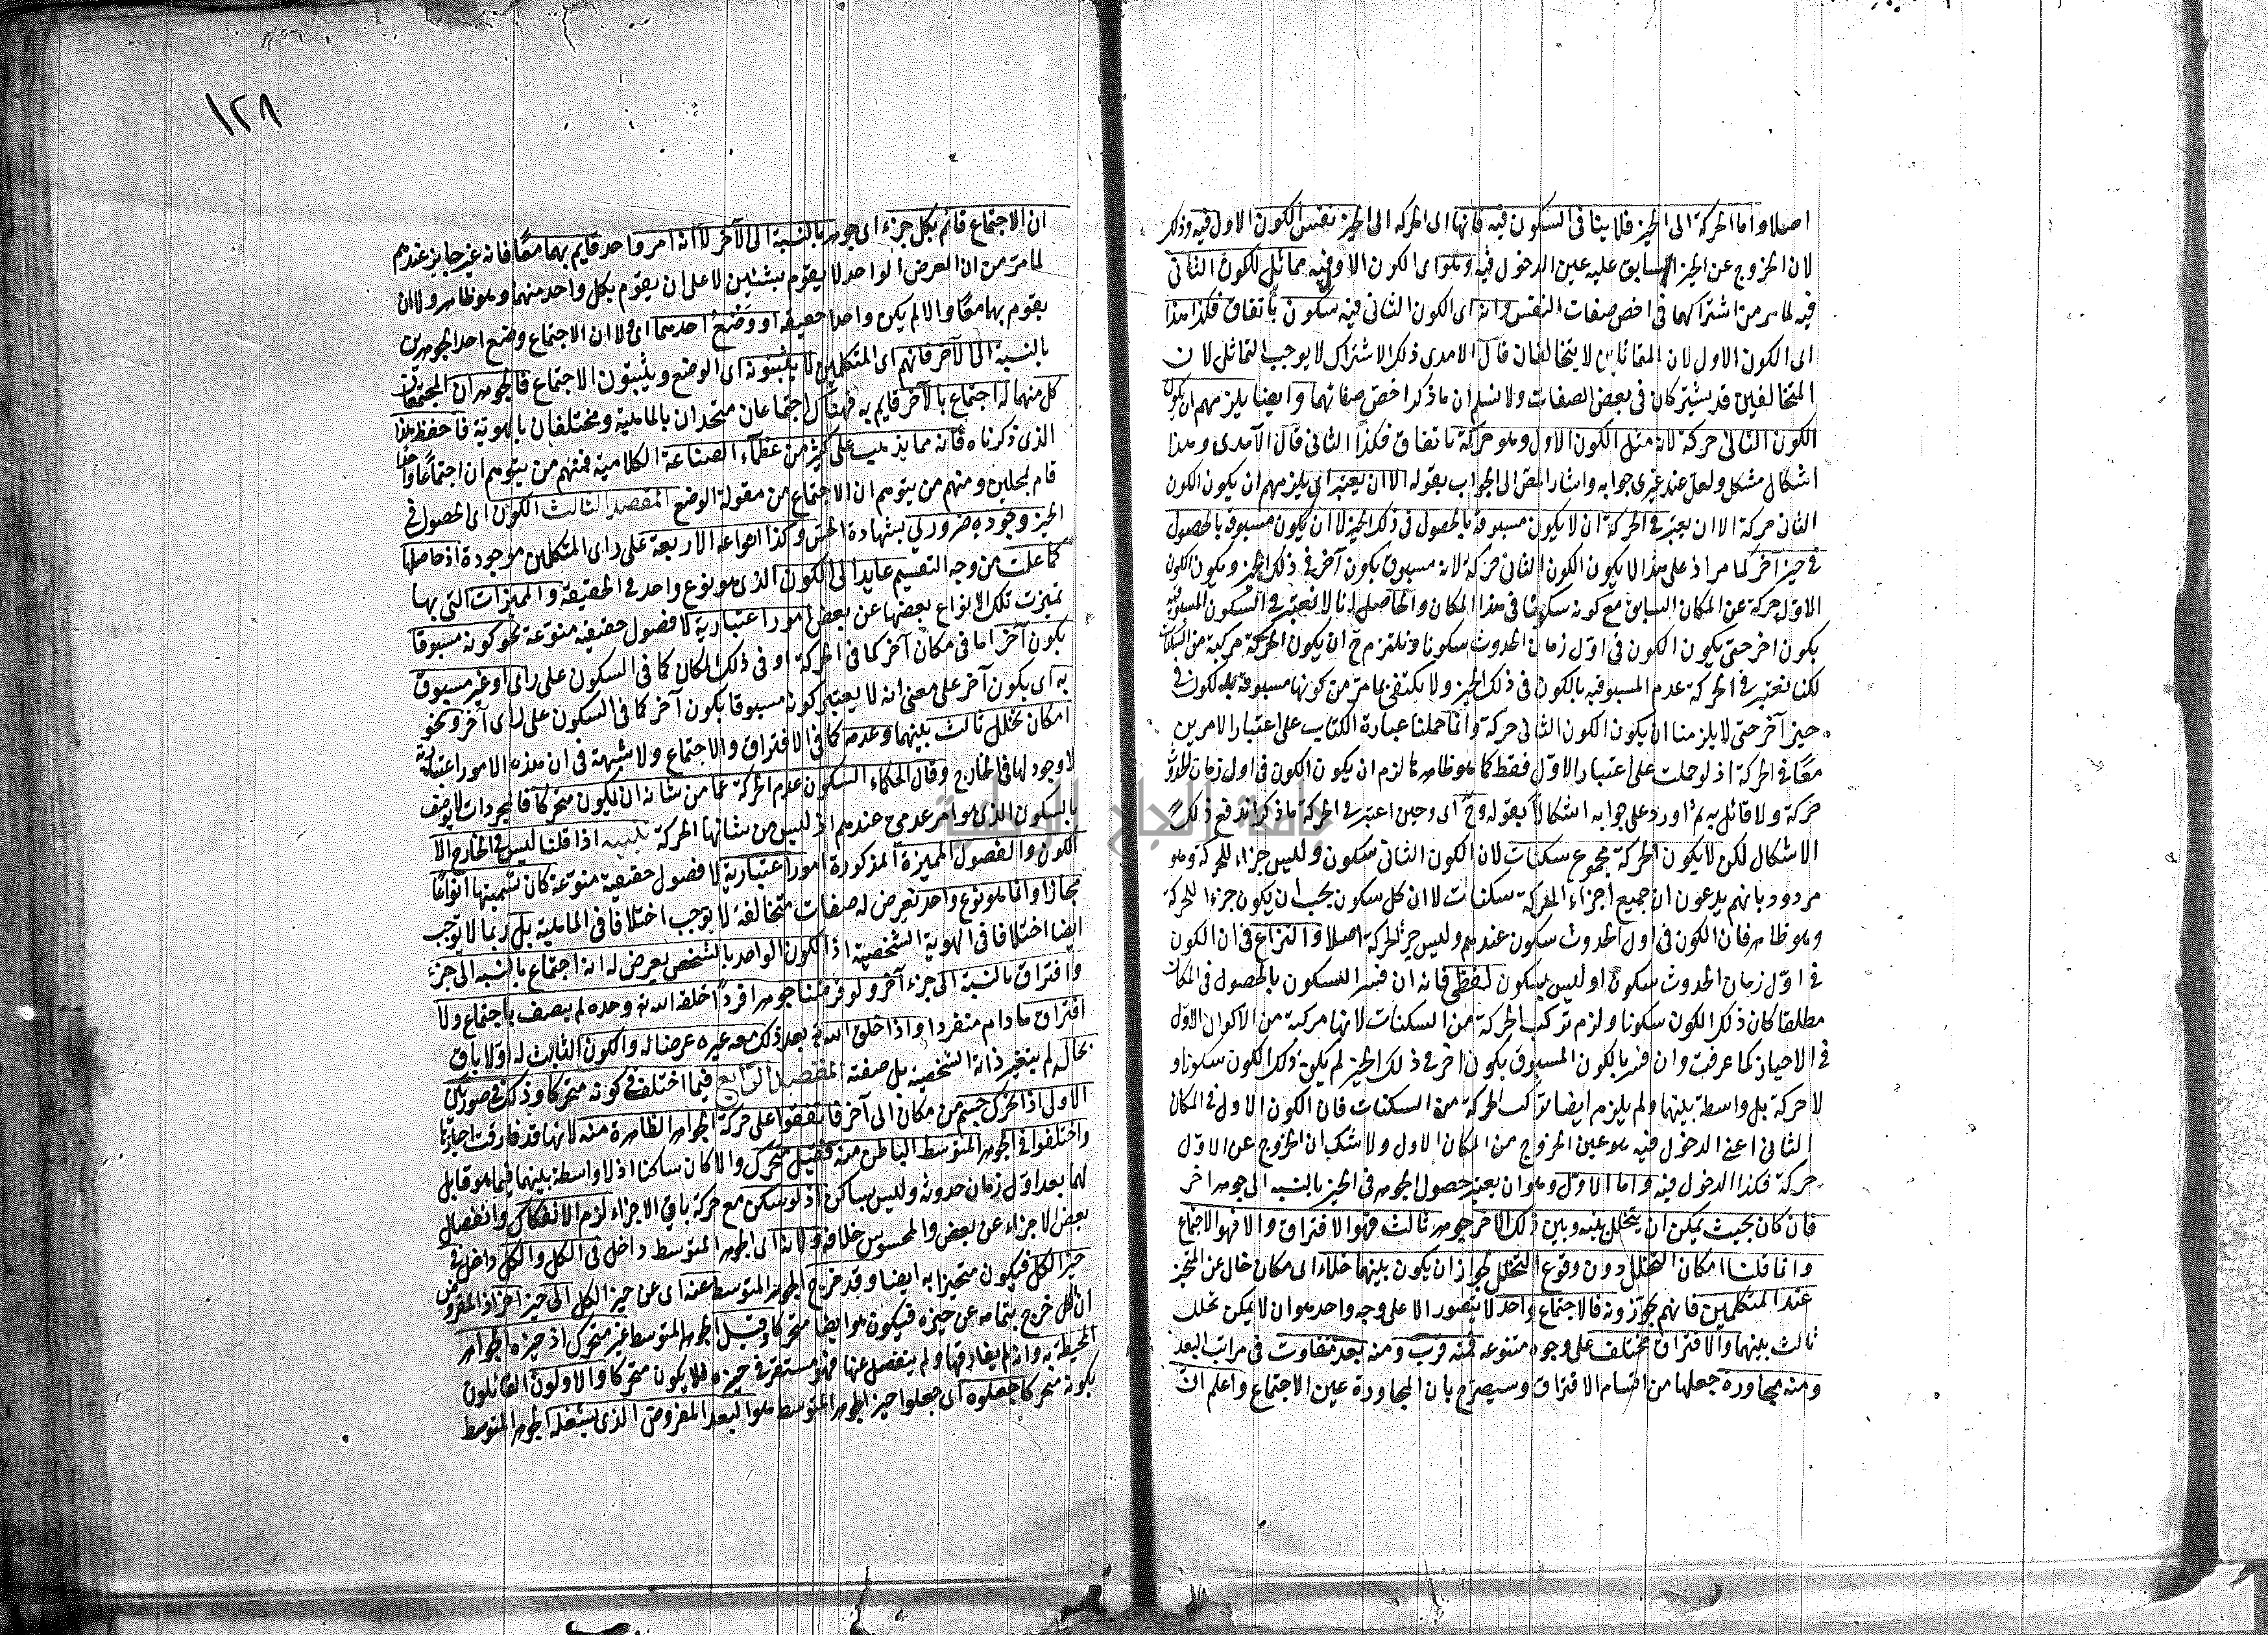 اصلا واما الحركة الى الحيز فلا ينافى السكون فيه فانها اى الحركة الى الحيز نفس الكون الاول فيه وذلك
لان الخروج عن الحيز السابق عليه عين الدخول فيه وهو اى الكون الاول فيه مماثل للكون الثانى
فيه لما مر من اشتراكهما فى اخص صفات النفس وانه اى الكون الثانى فيه سكون باتفاق فكذا هذا
اى الكون الاول لان المتماثلين لا يتخالفان قال الامدى ذلك الاشتراك لا يوجب التماثل لان
المتخالفين قد يشتركان فى بعض الصفات ولا نسلم ان ما ذكر اخص صفاتهما وايضا يلزمهم ان يكون
الكون الثانى حركة لانه مثل الكون الاول وهو حركة باتفاق فكذا الثانى قال الآمدى وهذا
اشكال مشكل ولعل عند غيرى جوابه واشار المص الى الجواب بقوله الا ان يعتبر اى يلزمهم ان يكون الكون
الثانى حركة الا ان يعتبر فى الحركة ان لا يكون مسبوقة بالحصول فى ذلك الحيز لا ان يكون مسبوقة بالحصول
فى حيز آخر كما مر اذ على هذا لا يكون الكون الثانى حركة لانه مسبوق بكون آخر فى ذلك الحيز ويكون الكون
الاول حركة عن المكان السابق مع كونه سكونا فى هذا المكان والحاصل انا لا نعتبر فى السكون المسبوقية
بكون اخر حتى يكون الكون فى اول زمان الحدوث سكونا ونلتزم ح ان يكون الحركة مركبة من السكنات
لكنا نعتبر فى الحركة عدم المسبوقيه بالكون فى ذلك الحيز ولا يكتفى بما مر من كونها مسبوقة بكون فى
حيز آخر حتى لا يلزمنا ان يكون الكون الثانى حركة وانما حملنا عبارة الكتاب على اعتبار الامرين
معا فى الحركة اذ لو حملت على اعتبار الاول فقط كما هو ظاهرها لزم ان يكون الكون فى اول زمان الحدوث
حركة ولا قائل به ثم اورد على جوابه اشكالا بقوله وح اى وحين اعتبر فى الحركة ما ذكر اندفع ذلك
الاشكال لكن لا يكون الحركة مجموع سكنات لان الكون الثانى سكون وليس جزاء للحركة وهو
مردود بانهم يدعون ان جميع اجزاء الحركة سكنات لا ان كل سكون يجب ان يكون جزء الحركة
وهو ظاهر فان الكون فى اول الحدوث سكون عندهم وليس جزء لحركة اصلا والنزاع فى ان الكون
فى اول زمان الحدوث سكون او ليس بسكون لفظى فانه ان فسر السكون بالحصول فى المكان
مطلقا كان ذلك الكون سكونا ولزم تركب الحركة من السكنات لانها مركبة من الاكوان الاول
فى الاحياز كما عرفت وان فسر بالكون المسبوق بكون اخر فى ذلك الحيز لم يكن ذلك الكون سكونا و
لا حركة بل واسطة بينها ولم يلزم ايضا تركب الحركة من السكنات فان الكون الاول فى المكان
الثانى اعنى الدخول فيه هو عين الخروج من المكان الاول ولا شك ان الخروج عن الاول
حركة فكذا الدخول فيه واما الاول وهو ان يعتبر حصول الجوهر فى الحيز بالنسبه الى جوهر اخر
فان كان بحيث يمكن ان يتخلل بينه وبين ذلك الاخر جوهر ثالث فهو الافتراق والا فهو الاجتماع
وانا قلنا امكان التخلل دون وقوع التخلل لجواز ان يكون بينهما خلاء اى مكان خال عن المتحيز
عند المتكلمين فانهم يجوزونه فالاجتماع واحد لا يتصور الا على وجه واحد هو ان لا يمكن تخلل
ثالث بينهما والافتراق مختلف على وجوه متنوعه فمنه قرب ومنه بعد متفاوت فى مراتب البعد
ومنه مجاورة جعلها من اقسام الافتراق وسيصرح بان المجاورة عين الاجتماع واعلم ان
١٢٨
ان الاجتماع قائم بكل جزء اى جوهر بالنسبة الى الآخر لا انه امر واحد قايم بهما معا فانه غير جايز عندهم
لما مر من ان العرض الواحد لا يقوم بشيئين لا على ان يقوم بكل واحد منهما وهو ظاهر ولا ان
يقوم بهما معا والا لم يكن واحدا حقيقة او وضع احدهما اى ولا ان الاجتماع وضع احد الجوهرين
بالنسبة الى الآخر فانهم اى المتكلمين لا يثبتونه اى الوضع ويثبتون الاجتماع فالجوهران المجتمعان
كل منهما له اجتماع بالآخر قايم به فهناك اجتماعان متحدان بالماهية ومختلفان بالهوية فاحفظ هذا
الذى ذكرناه فانه مما يذهب على كثير من عظماء الصناعة الكلامية فمنهم من يتوهم ان اجتماعا واحدا
قام بمحلين ومنهم من يتوهم ان الاجتماع من مقولة الوضع المقصد الثالث الكون اى الحصول فى
الحيز وجوده ضرورى بشهادة الحس وكذا انواعه الاربعة على راى المتكلمين موجودة اذ حاصلها
كما علمت من وجه التقسيم عايد الى الكون الذى هو نوع واحد فى الحقيقة والمميزات التى بها
تميزت تلك الانواع بعضها عن بعض امور اعتبارية لا فصول حقيقيه منوعة نحو كونه مسبوقا
بكون آخر اما فى مكان آخر كما فى الحركة او فى ذلك المكان كما فى السكون على راى او غير مسبوق
به اى بكون آخر على معنى انه لا يعتبر كونه مسبوقا بكون آخر كما فى السكون على راى آخر ونحو
امكان تخلل ثالث بينهما وعدمه كما فى الافتراق والاجتماع ولا شبهة فى ان هذه الامور اعتبارية
لا وجود لها فى الخارج وقال الحكماء السكون عدم الحركة عما من شانه ان يكون متحركا فالمجردات لا يوصف
بالسكون الذى هو امر عدمى عندهم اذ ليس من شانها الحركة تنبيه اذا قلنا ليس فى الخارج الا
الكون والفصول المميزة المذكورة امور اعتبارية لا فصول حقيقية منوعة كان تسميتها انواعا
مجازا وانما هو نوع واحد تعرض له صفات متخالفة لا توجب اختلافا فى الماهية بل ربما لا توجب
ايضا اختلافا فى الهوية الشخصية اذ الكون الواحد بالشخص يعرض له انه اجتماع بالنسبه الى جزء
وافتراق بالنسبة الى جزء آخر ولو فرضنا جوهرا فردا خلقه الله تع وحده لم يتصف باجتماع ولا
افتراق ما دام منفردا واذا خلق الله تع بعد ذلك معه غيره عرضا له والكون الثابت له اولا باق
بحاله لم يتغير ذاته الشخصية بل صفته المقصد الرابع فيما اختلف فى كونه متحركا وذلك فى صورتين
الاولى اذا تحرك جسم من مكان الى آخر فاتفقوا على حركة الجواهر الظاهرة منه لانها قد فارقت احيازها
واختلفوا فى الجوهر المتوسط الباطن منه فقيل متحرك والا كان ساكنا اذ لا واسطه بينهما فيما هو قابل
لهما بعد اول زمان حدوثه وليس بساكن اذ لو سكن مع حركة باقى الاجزاء لزم الانفكاك وانفصال
بعض الاجزاء عن بعض والمحسوس خلافه ولانه اى الجوهر المتوسط داخل فى الكل والكل داخل فى
حيز الكل فيكون متحيزا به ايضا وقد خرج الجوهر المتوسط عنه اى عن حيز الكل الى حيز اخر اذ المفروض
ان الكل خرج بتمامه عن حيزه فيكون هو ايضا متحركا وقيل الجوهر المتوسط غير متحرك اذ حيزه الجواهر
المحيطة به وانه لم يفارقها ولم ينفصل عنها فهو مستقر فى حيزه فلا يكون متحركا والاولون القائلون
بكونه متحركا جعلوه اى جعلوا حيز الجوهر المتوسط هو البعد المفروض الذى يشغله الجوهر المتوسط